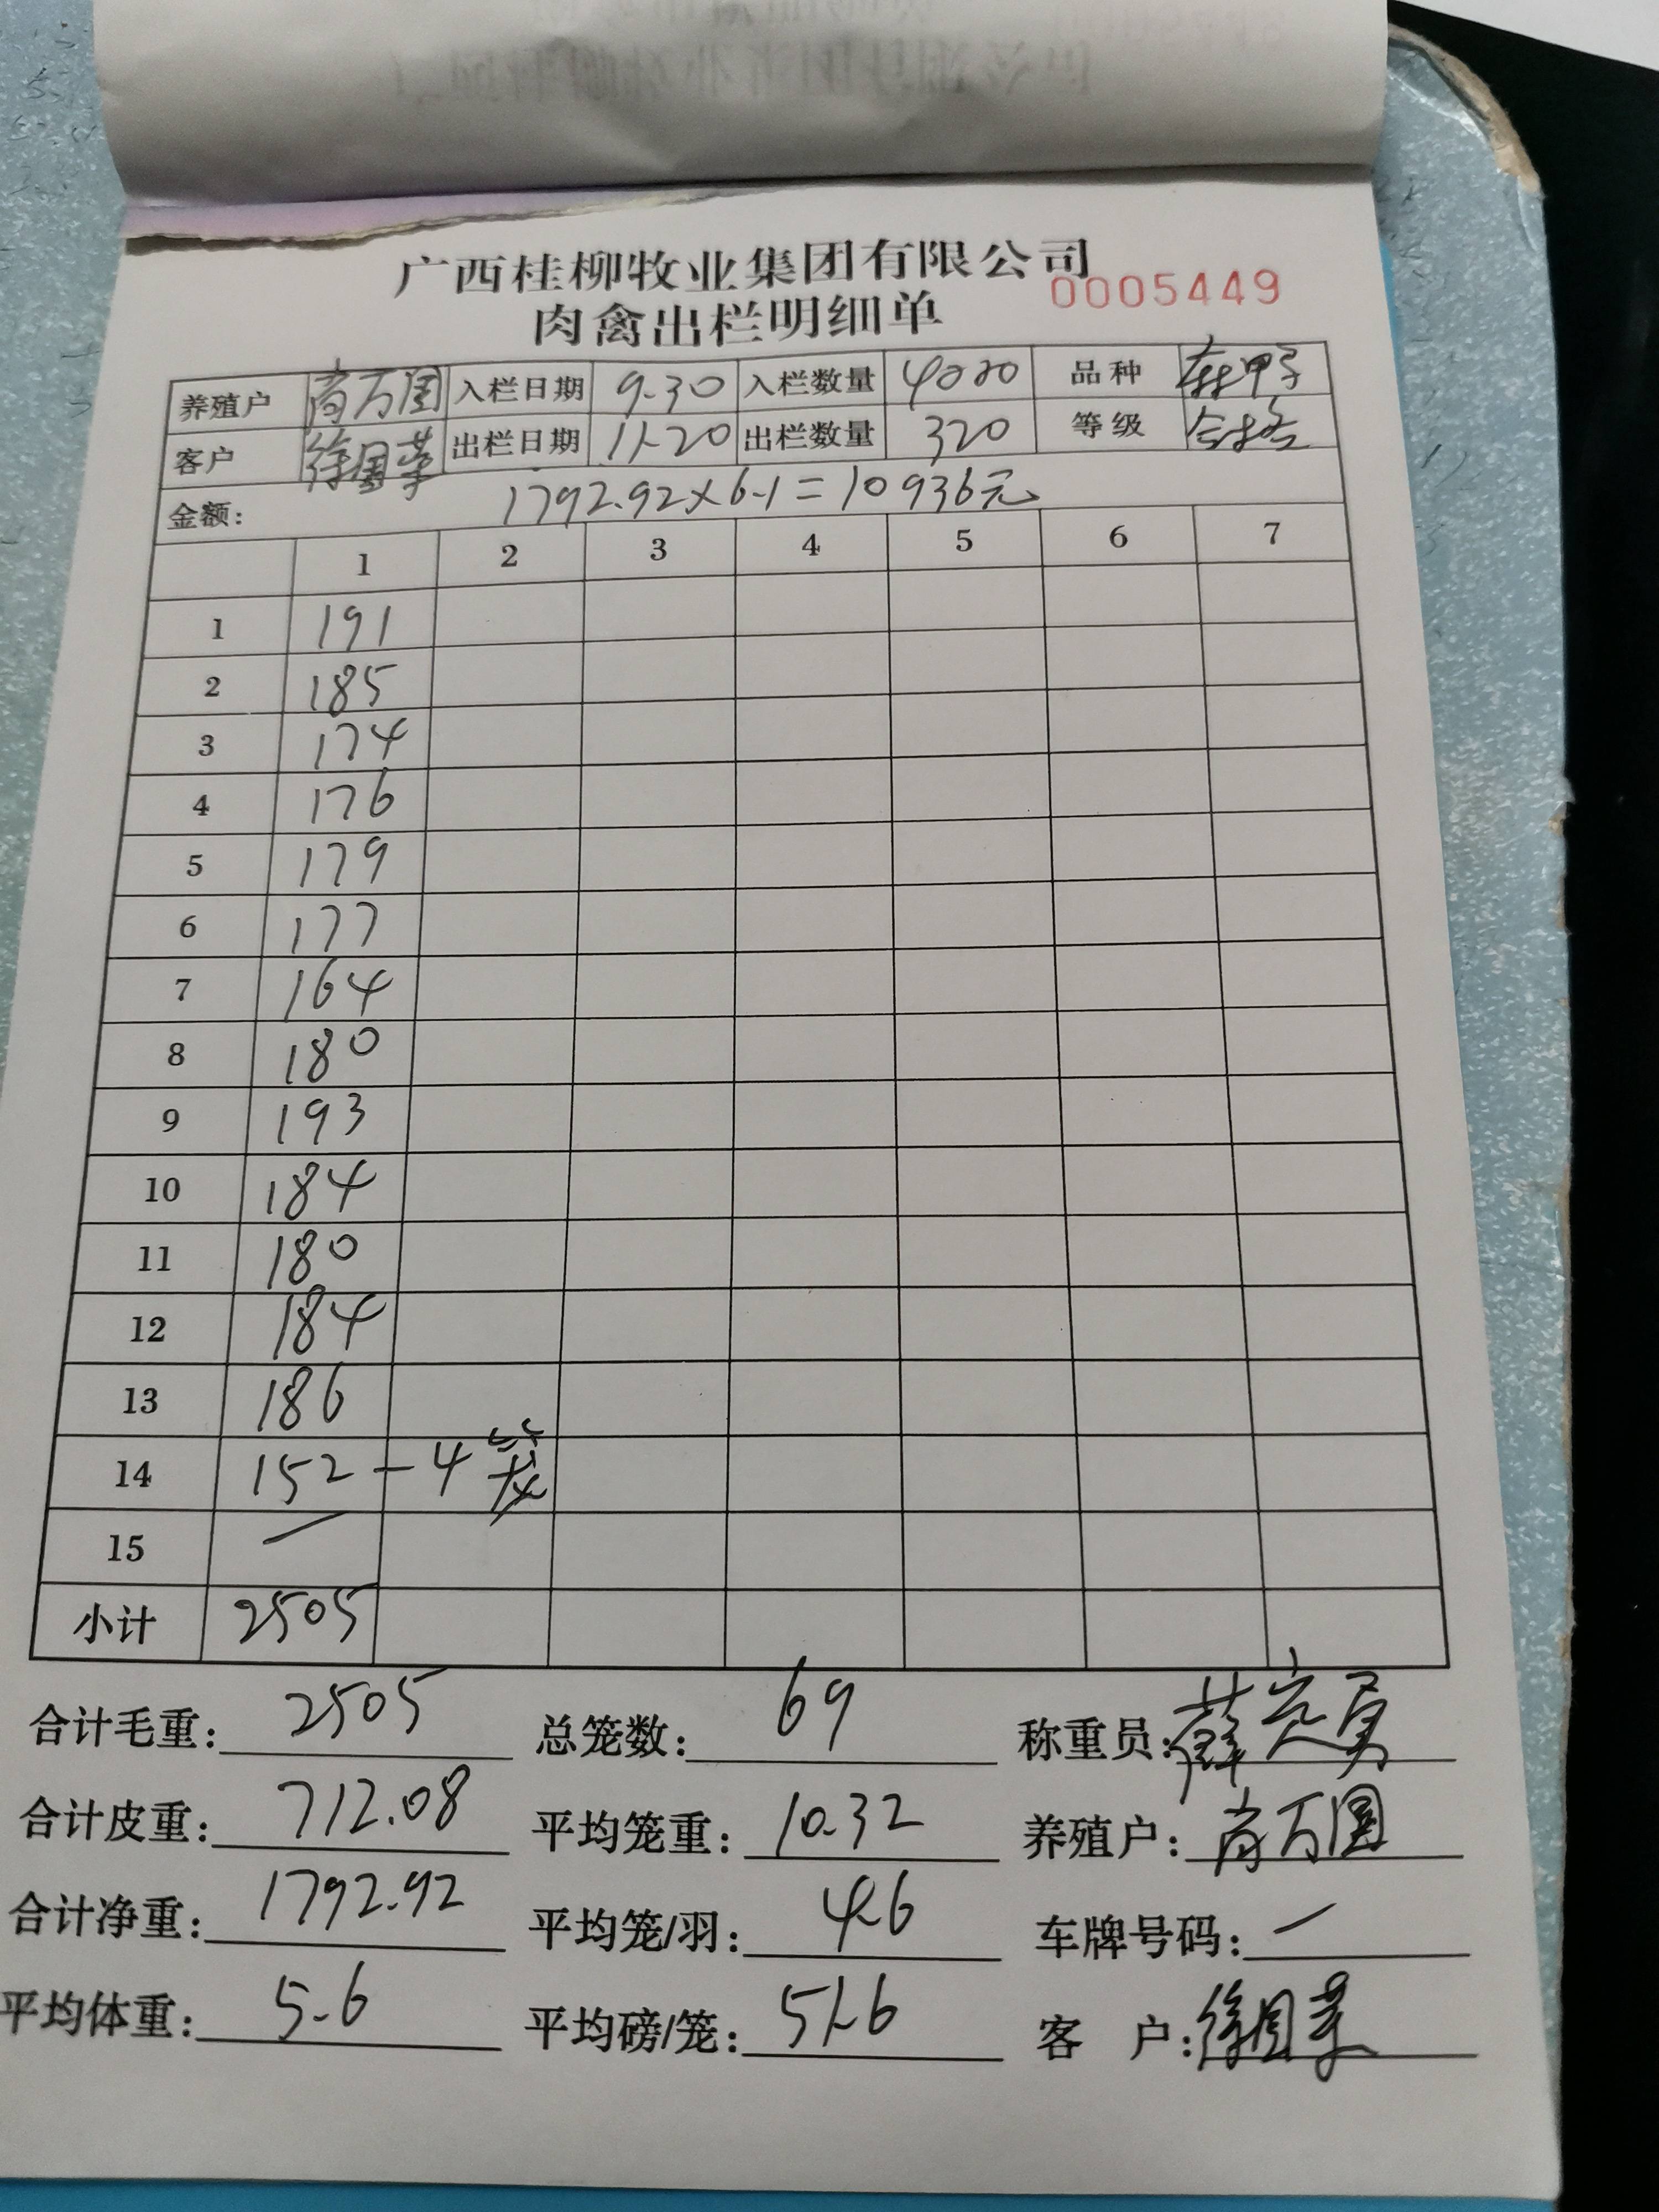 广西桂柳牧业集团有限公司
0005449
肉禽出栏明细单
养殖户 肖万国 入栏日期 9.30 入栏数量 4000 品种
客户 徐国荣 出栏日期 11.20 出栏数量 320 等级 合格
金额: 1792.92×6.1=10936元
1 2 3 4 5 6 7
1 191
2 185
3 174
4 176
5 179
6 177
7 164
8 180
9 193
10 184
11 180
12 184
13 186
14 152 - 4笼
15 /
小计 2505
合计毛重: 2505 总笼数: 69 称重员:
合计皮重: 712.08 平均笼重: 10.32 养殖户: 肖万国
合计净重: 1792.92 平均笼/羽: 4.6 车牌号码: /
平均体重: 5.6 平均磅/笼: 51.6 客 户: 徐国荣